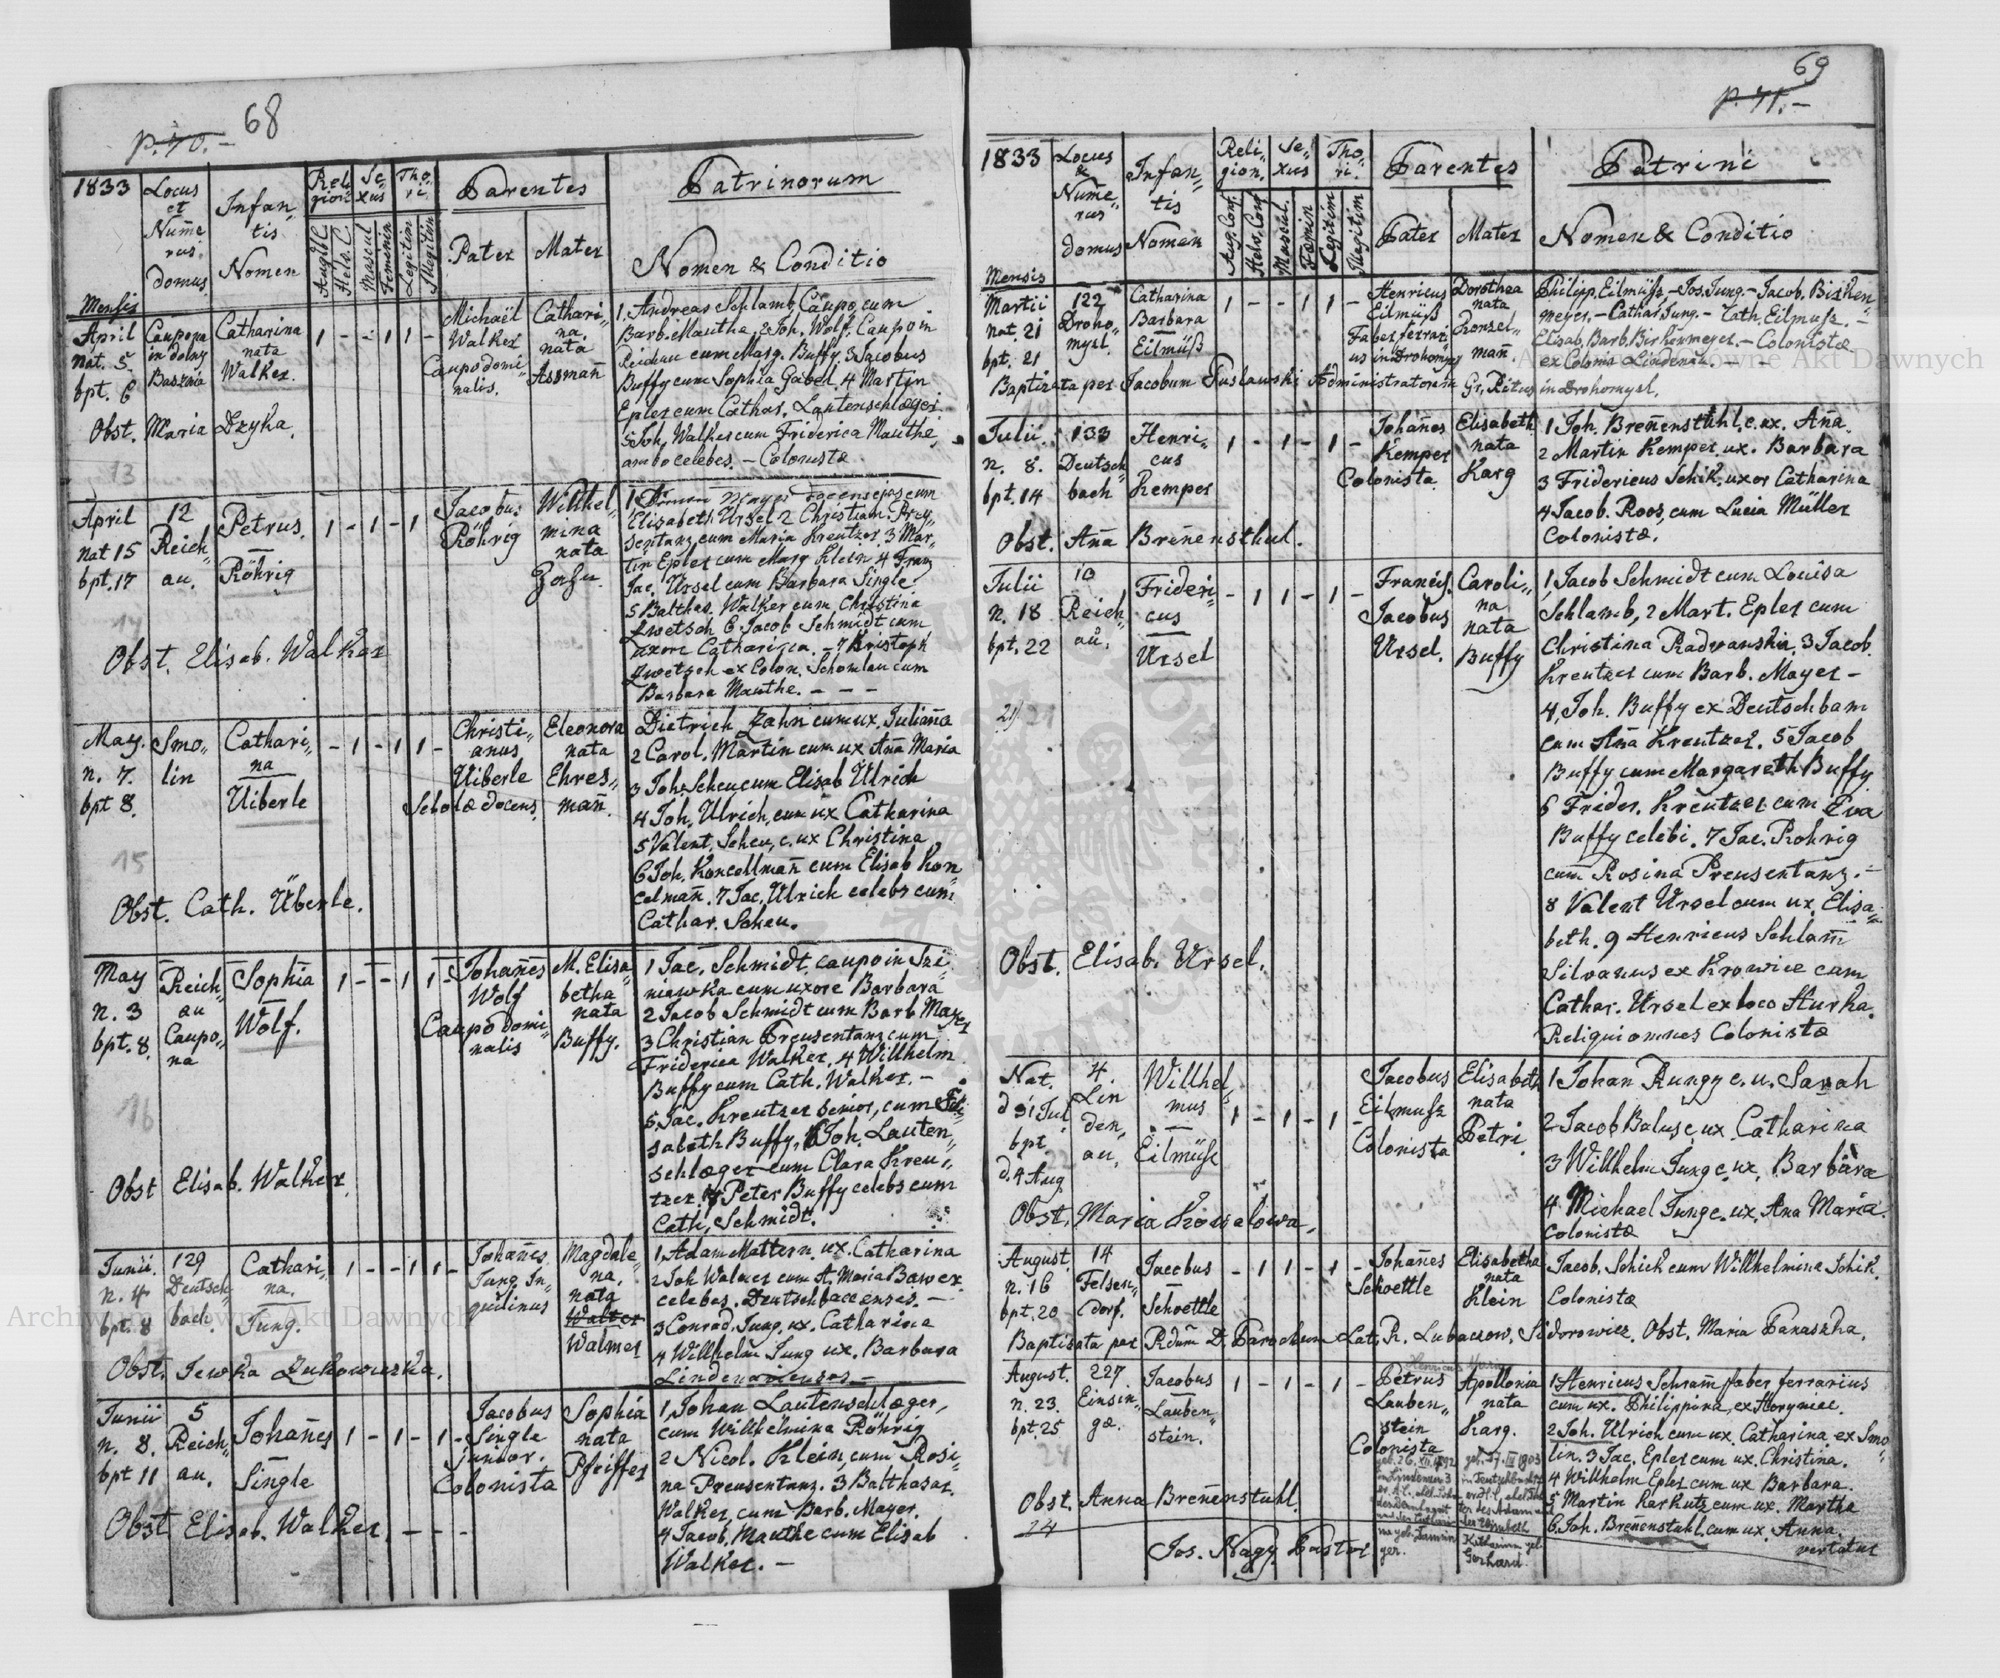 68
p. 70. -
1833
Locus et Nume rus domus
Infan- tis Nomen
Reli- gion.
Se- xus
Tho- ri
Parentes
Patrinorum
Augst. C.
Helv. C.
Mascul
Femenin
Legitim
Illegitim
Pater
Mater
Nomen & Conditio
Mensis
April nat. 5. bpt. 6
Caupona in dolny Basznia
Catharina nata Walker.
1 - - 1 1 -
Michaël Walker Caupo domi- nalis.
Cathari- na nata Assmañ
1. Andreas Schlamb, Caupo, cum
Barb. Mauthe, 2 Joh. Wolf. Caupo in
Reichau cum Marg. Buffy, 3 Jacobus
Buffy cum Sophia Gabel, 4 Martin
Epler cum Cathar. Lautenschlæger
5 Joh. Walker cum Friderica Mauthe,
ambo celebes. - Colonistæ
Obst. Maria Dzyha.
13
April nat 15 bpt. 17
12 Reich- au.
Petrus. Röhrig
1 - 1 - 1
Jacobus Röhrig
Willhel- mina nata Zahn.
Elisabeth Ursel 2 Christian Prey-
sentanz cum Maria Kreutzer. 3 Mar-
tin Epler cum Marg Klein 4 Franz
Jac. Ursel cum Barbara Single
5 Balthas. Walker cum Christina
Zwetsch 6 Jacob Schmidt cum
uxore Catharina. - 7 Kristoph
Zwetsch ex Colon. Schomlau cum
Barbara Mauthe. - - -
14
Obst. Elisab. Walker
May. n. 7. bpt 8.
Smo- lin
Cathari- na Uiberle
- 1 - 1 1 -
Christi- anus Uiberle Scholæ docens.
Eleonora nata Ehres- mañ.
Dietrich Zahn cum ux. Juliaña
2 Carol. Martin cum ux Aña Maria
3 Joh. Scheu cum Elisab Ulrich
4 Joh. Ulrich, cum ux Catharina
5 Valent. Scheu, c. ux Christina
6 Joh. Koncellmañ cum Elisab Kon-
celmañ. 7 Jac. Ulrich celebs cum
Cathar. Scheu.
15
Obst. Cath. Überle.
May n. 3 bpt. 8.
Reich- au Caupo- na
Sophia Wolf.
1 - - 1 1 -
Johañes Wolf Caupo domi- nalis
M. Elisa- betha nata Buffy.
1 Jac. Schmidt, caupo in Szi-
niawka cum uxore Barbara
2 Jacob Schmidt cum Barb Mayer
3 Christian Preusentanz cum
Friderica Walker. 4 Willhelm
Buffy cum Cath. Walker. -
5 Jac. Kreutzer senior, cum Eli-
sabeth Buffy, 6 Joh. Lauten-
schlæger cum Clara Kreu-
tzer 7 Peter Buffy celebs cum
Cath. Schmidt.
16
Obst Elisab. Walker.
Junii. n. 4 bpt. 8
129 Deutsch- bach.
Cathari- na. Jung.
1 - - 1 1 -
Johañes Jung In- quilinus
Magdale- na. nata Walter Walmer
1, Adam Mattern ux. Catharina
2 Joh Walmer cum A. Maria Bawer.
celebes. Deutschbaccenses. -
3 Conrad. Jung. ux. Catharina
4 Willhelm Jung ux. Barbara
Lindenavienses -
Obst. Jewka Zukowiezka.
Junii n. 8. bpt 11
5 Reich- au.
Johañes Single
1 - 1 - 1 -
Jacobus Single junior. Colonista
Sophia nata Pfeiffer
1, Johan Lautenschlæger,
cum Willhelmina Röhrig
2 Nicol. Klein cum Rosi-
na Preusentanz. 3 Balthasar.
Walker, cum Barb. Mayer.
4 Jacob. Mauthe cum Elisab
Walker. -
Obst Elisab. Walker. - - -
69
p. 71. -
1833
Locus & Nume- rus domus
Infan- tis Nomen
Reli- gion.
Se- xus
Tho- ri.
Parentes
Patrini
Aug. Conf.
Helv. Conf
Mascul.
Fœmin
Legitim
Illegitim
Pater
Mater
Nomen & Conditio
Mensis
Martii nat. 21 bpt. 21
122 Droho- mysl.
Catharina Barbara Eilmüß
1 - - 1 1 -
Henricus Eilmüß Faber ferrari- us in Drohomysl
Dorothea nata Konzel- mañ.
Philipp. Eilmüß, - Jos. Jung. - Jacob. Birken-
meyer, - Cathar Jung. - Cath. Eilmuß. -
Elisab. Barb. Birkenmeyer. - Colonistæ
ex Colonia Lindenau. - -
Baptizata per Jacobum Puslawski Administratorem Gr. Ritus in Drohomysl.
Julii. n. 8. bpt. 14
133 Deutsch- bach
Henri- cus Kemper
1 - 1 - 1 -
Johañes Kemper Colonista.
Elisabeth nata Karg
1 Joh. Breñenstuhl, c. ux. Aña.
2 Martin Kemper, ux. Barbara
3 Fridericus Schik, uxor Catharina
4 Jacob. Roos, cum Lucia Müller
Colonistæ.
Obst. Aña Breñensthul.
Julii n. 18 bpt. 22
10 Reich- au.
Frideri- cus Ursel
- 1 1 - 1 -
Francis. Jacobus Ursel.
Caroli- na nata Buffy
1, Jacob Schmidt cum Louisa
Schlamb, 2 Mart. Epler cum
Christina Radvanski, 3 Jacob.
Kreutzer cum Barb. Mayer -
4, Joh. Buffy ex Deutschbam
cum Aña Kreutzer. 5 Jacob
Buffy cum Margareth Buffy
6 Frider. Kreutzer cum Eva
Buffy celebi. 7 Jac. Rohrig
cum Rosina Preusentanz. -
8 Valent Ursel cum ux. Elisa-
beth. 9 Henricus Schlam̃
Silvanus ex Krowice cum
Cathar. Ursel ex loco Hurka.
Reliqui omnes Colonistæ
Obst. Elisab. Ursel.
Nat. d 31 Jul bpt. d. 4 Aug
4. Lin den- au.
Willhel- mus Eilmüß
1 - 1 - 1 -
Jacobus Eilmuß Colonista
Elisabeth nata Petri.
1 Johan Rungy c. u. Sarah
2 Jacob Balus c. ux. Catharina
3 Willhelm Jung c. ux. Barbara
4 Michael Jung c. ux. Ana Maria.
Colonistæ
Obst. Maria Kowalowa.
August. n. 16 bpt. 20
14 Felsen- dorf.
Jacobus Schoettle
- 1 1 - 1 -
Johañes Schoettle
Elisabetha nata Klein
Jacob. Schick cum Willhelmina Schik.
Colonistæ
Baptisata per Rdum D. Parochum Lat. R. Lubaczow. Sidorowicz. Obst. Maria Panaszka.
August. n. 23. bpt 25
227. Einsin- gæ.
Jacobus Lauben- stein.
1 - 1 - 1 -
Petrus Lauben- stein Colonista
Apollonia nata Karg.
1 Henricus Schram̃, faber ferrarius
cum ux. Philippina, ex Horyniec.
2 Joh. Ulrich cum ux. Catharina ex Smo-
lin. 3 Jac. Epler cum ux. Christina.
4 Willhelm Epler cum ux. Barbara.
5 Martin Karkutz cum ux. Martha
6. Joh. Breñenstuhl, cum ux. Anna.
vertatur
Obst. Anna Breñenstuhl.
24
Jos. Nagy Pastor
Archiwum Główne Akt Dawnych
Archiwum Główne Akt Dawnych